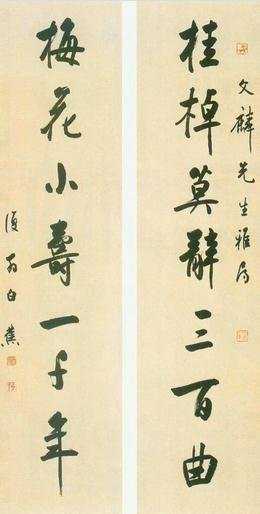 桂棹莫辭三百曲
文麟先生雅屬
梅花小壽一千年
復翁白蕉